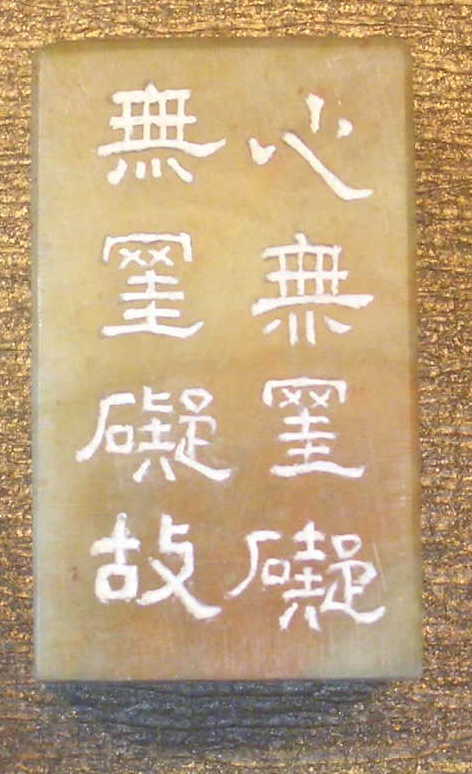 心無罣礙
無罣礙故